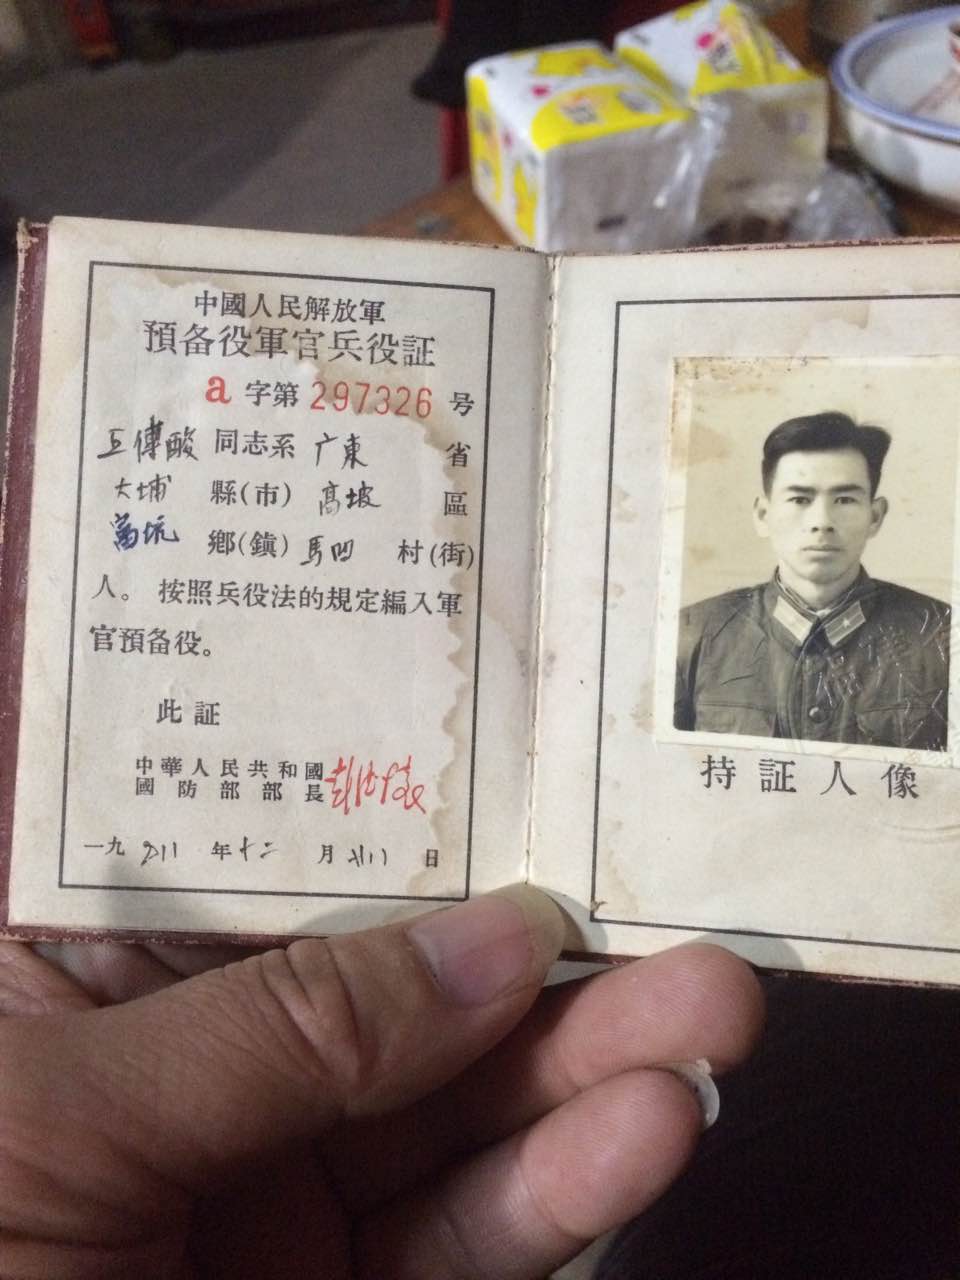 中國人民解放軍
預备役軍官兵役証
a 字第 297326 号
同志系 广東 省
大埔 縣(市) 高坡 區
坑 鄉(鎮) 馬凹 村(街)
人。按照兵役法的規定編入軍
官預备役。
此証
中華人民共和國
國防部部長 彭德懷
一九 年十二 月 日
持証人像